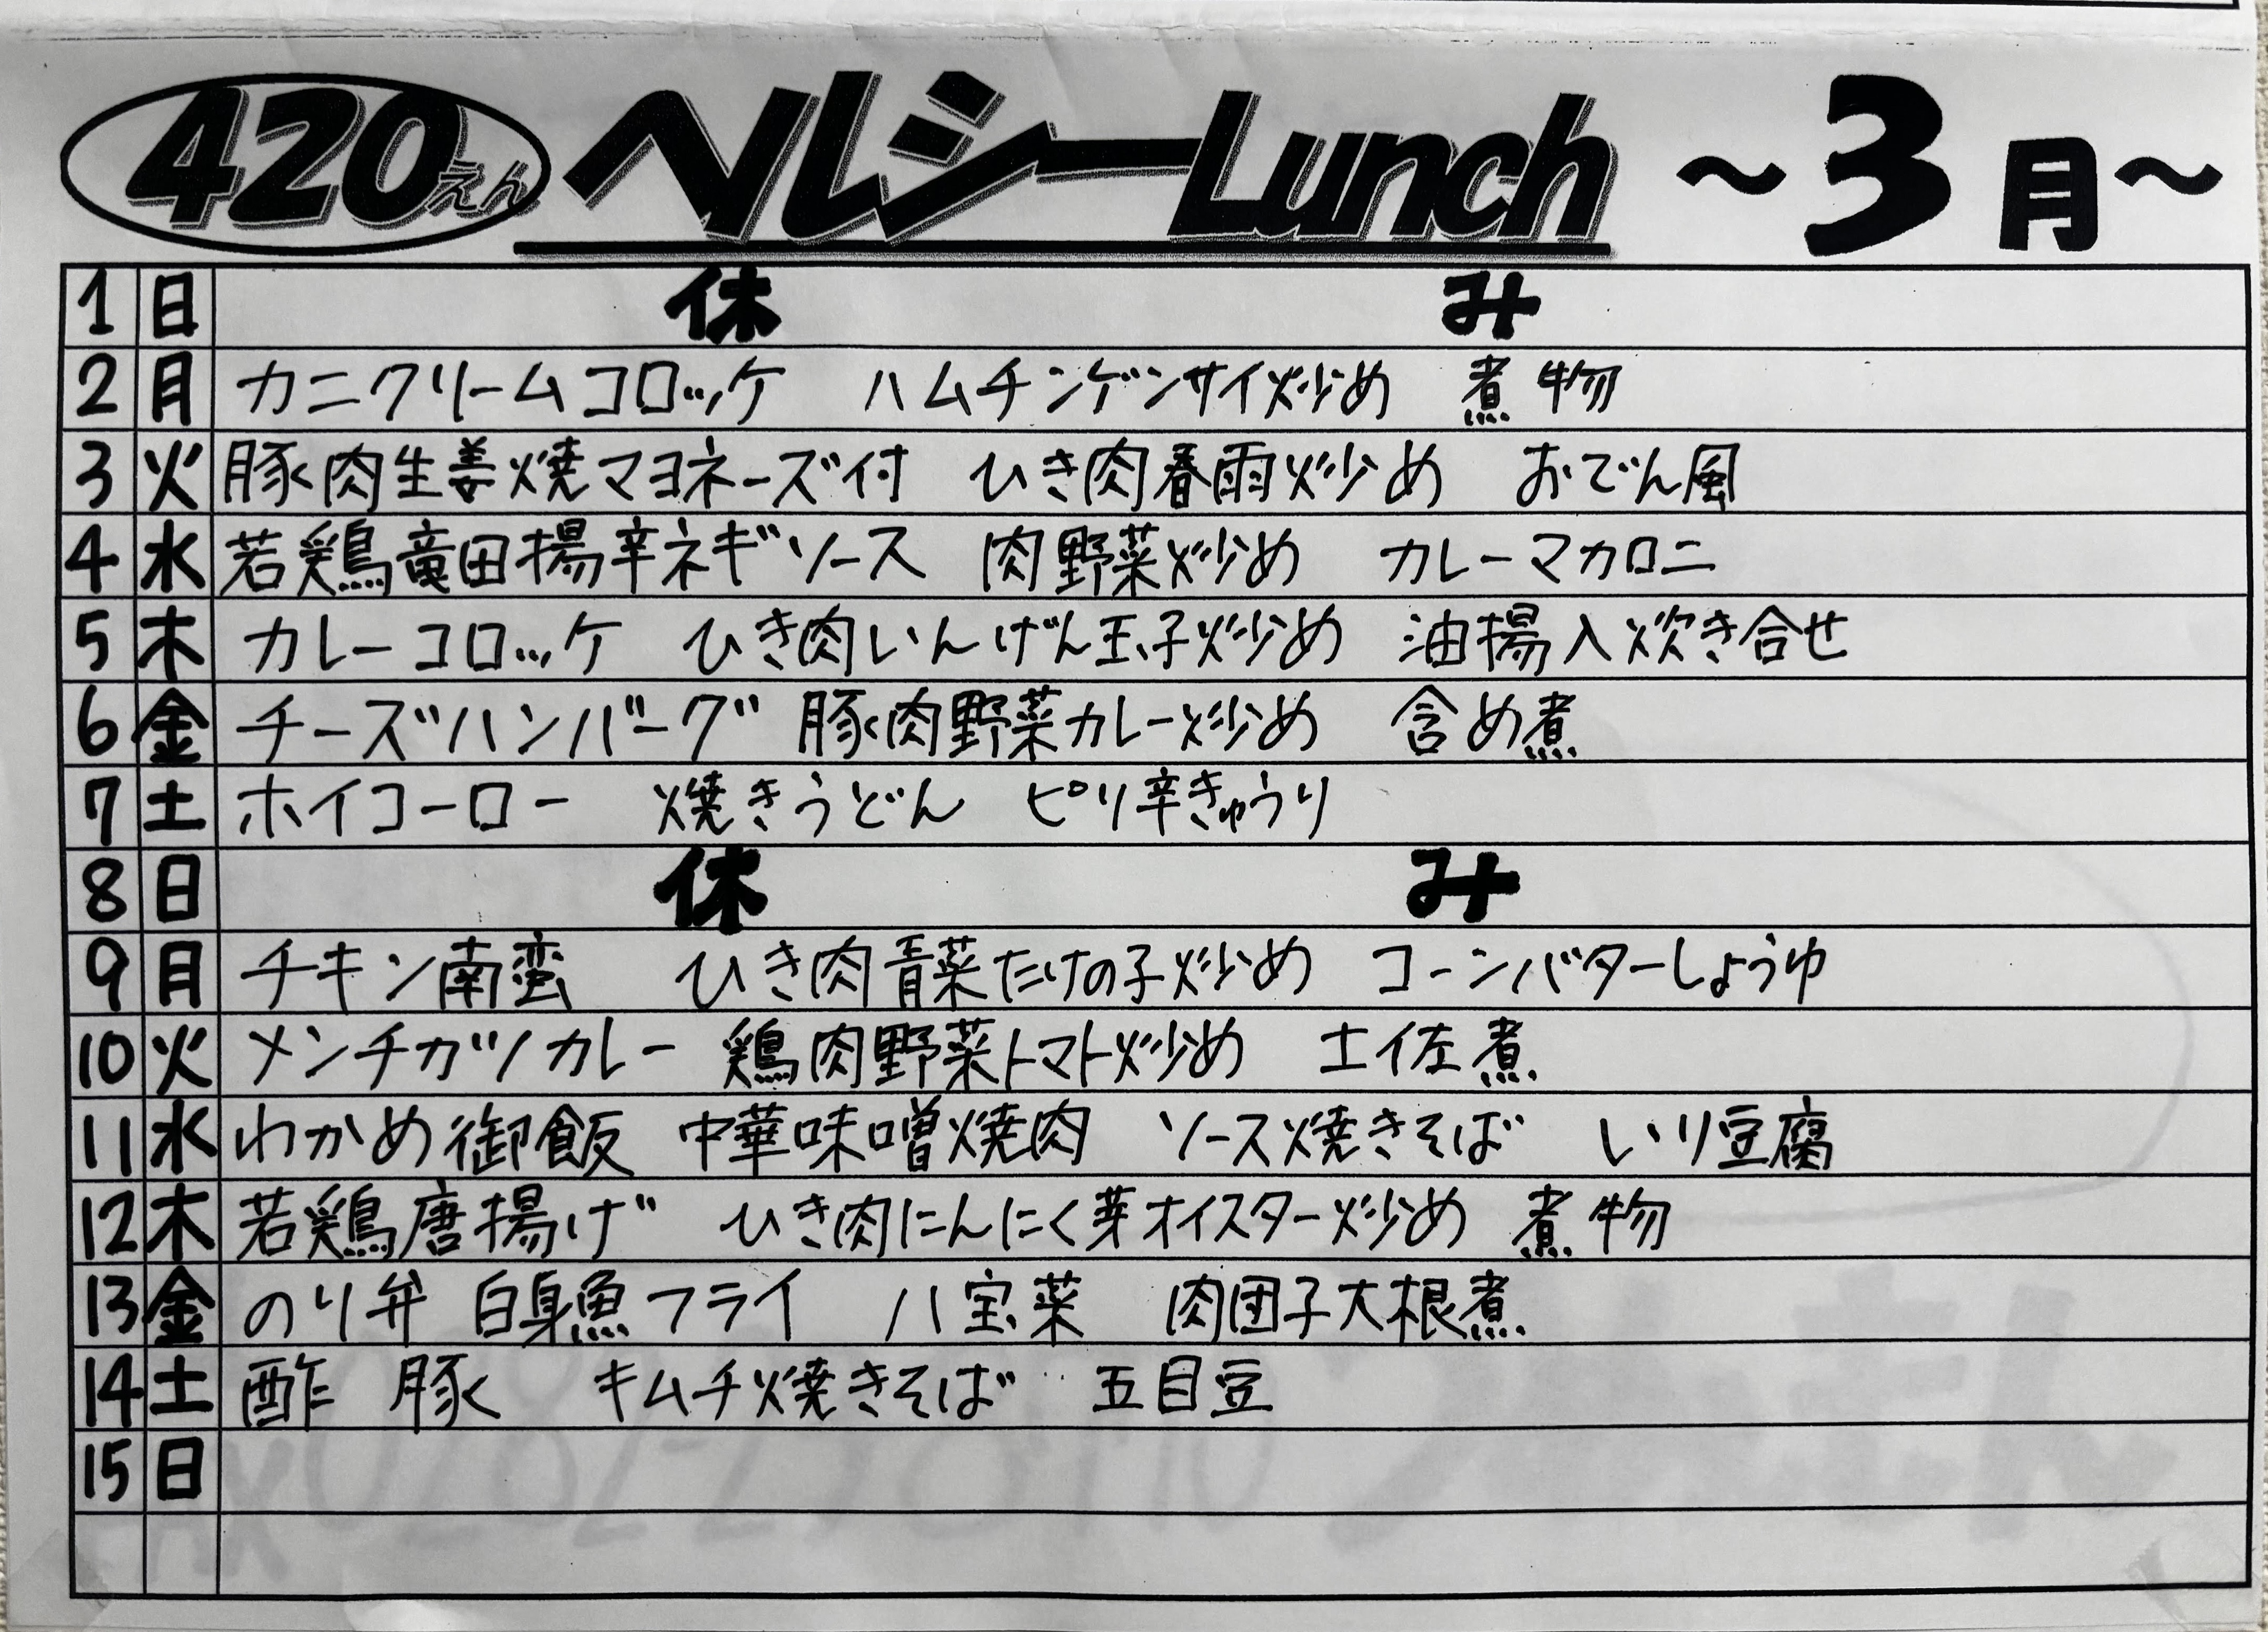 420えん ヘルシーLunch ～3月～
1 日 休み
2 月 カニクリームコロッケ ハムチンゲンサイ炒め 煮物
3 火 豚肉生姜焼マヨネーズ付 ひき肉春雨炒め おでん風
4 水 若鶏竜田揚辛ネギソース 肉野菜炒め カレーマカロニ
5 木 カレーコロッケ ひき肉いんげん玉子炒め 油揚入炊き合せ
6 金 チーズハンバーグ 豚肉野菜カレー炒め 含め煮
7 土 ホイコーロー 焼きうどん ピリ辛きゅうり
8 日 休み
9 月 チキン南蛮 ひき肉青菜たけの子炒め コーンバターしょうゆ
10 火 メンチカツカレー 鶏肉野菜トマト炒め 土佐煮
11 水 わかめ御飯 中華味噌焼肉 ソース焼きそば いり豆腐
12 木 若鶏唐揚げ ひき肉にんにく芽オイスター炒め 煮物
13 金 のり弁 白身魚フライ 八宝菜 肉団子大根煮
14 土 酢豚 キムチ焼きそば 五目豆
15 日